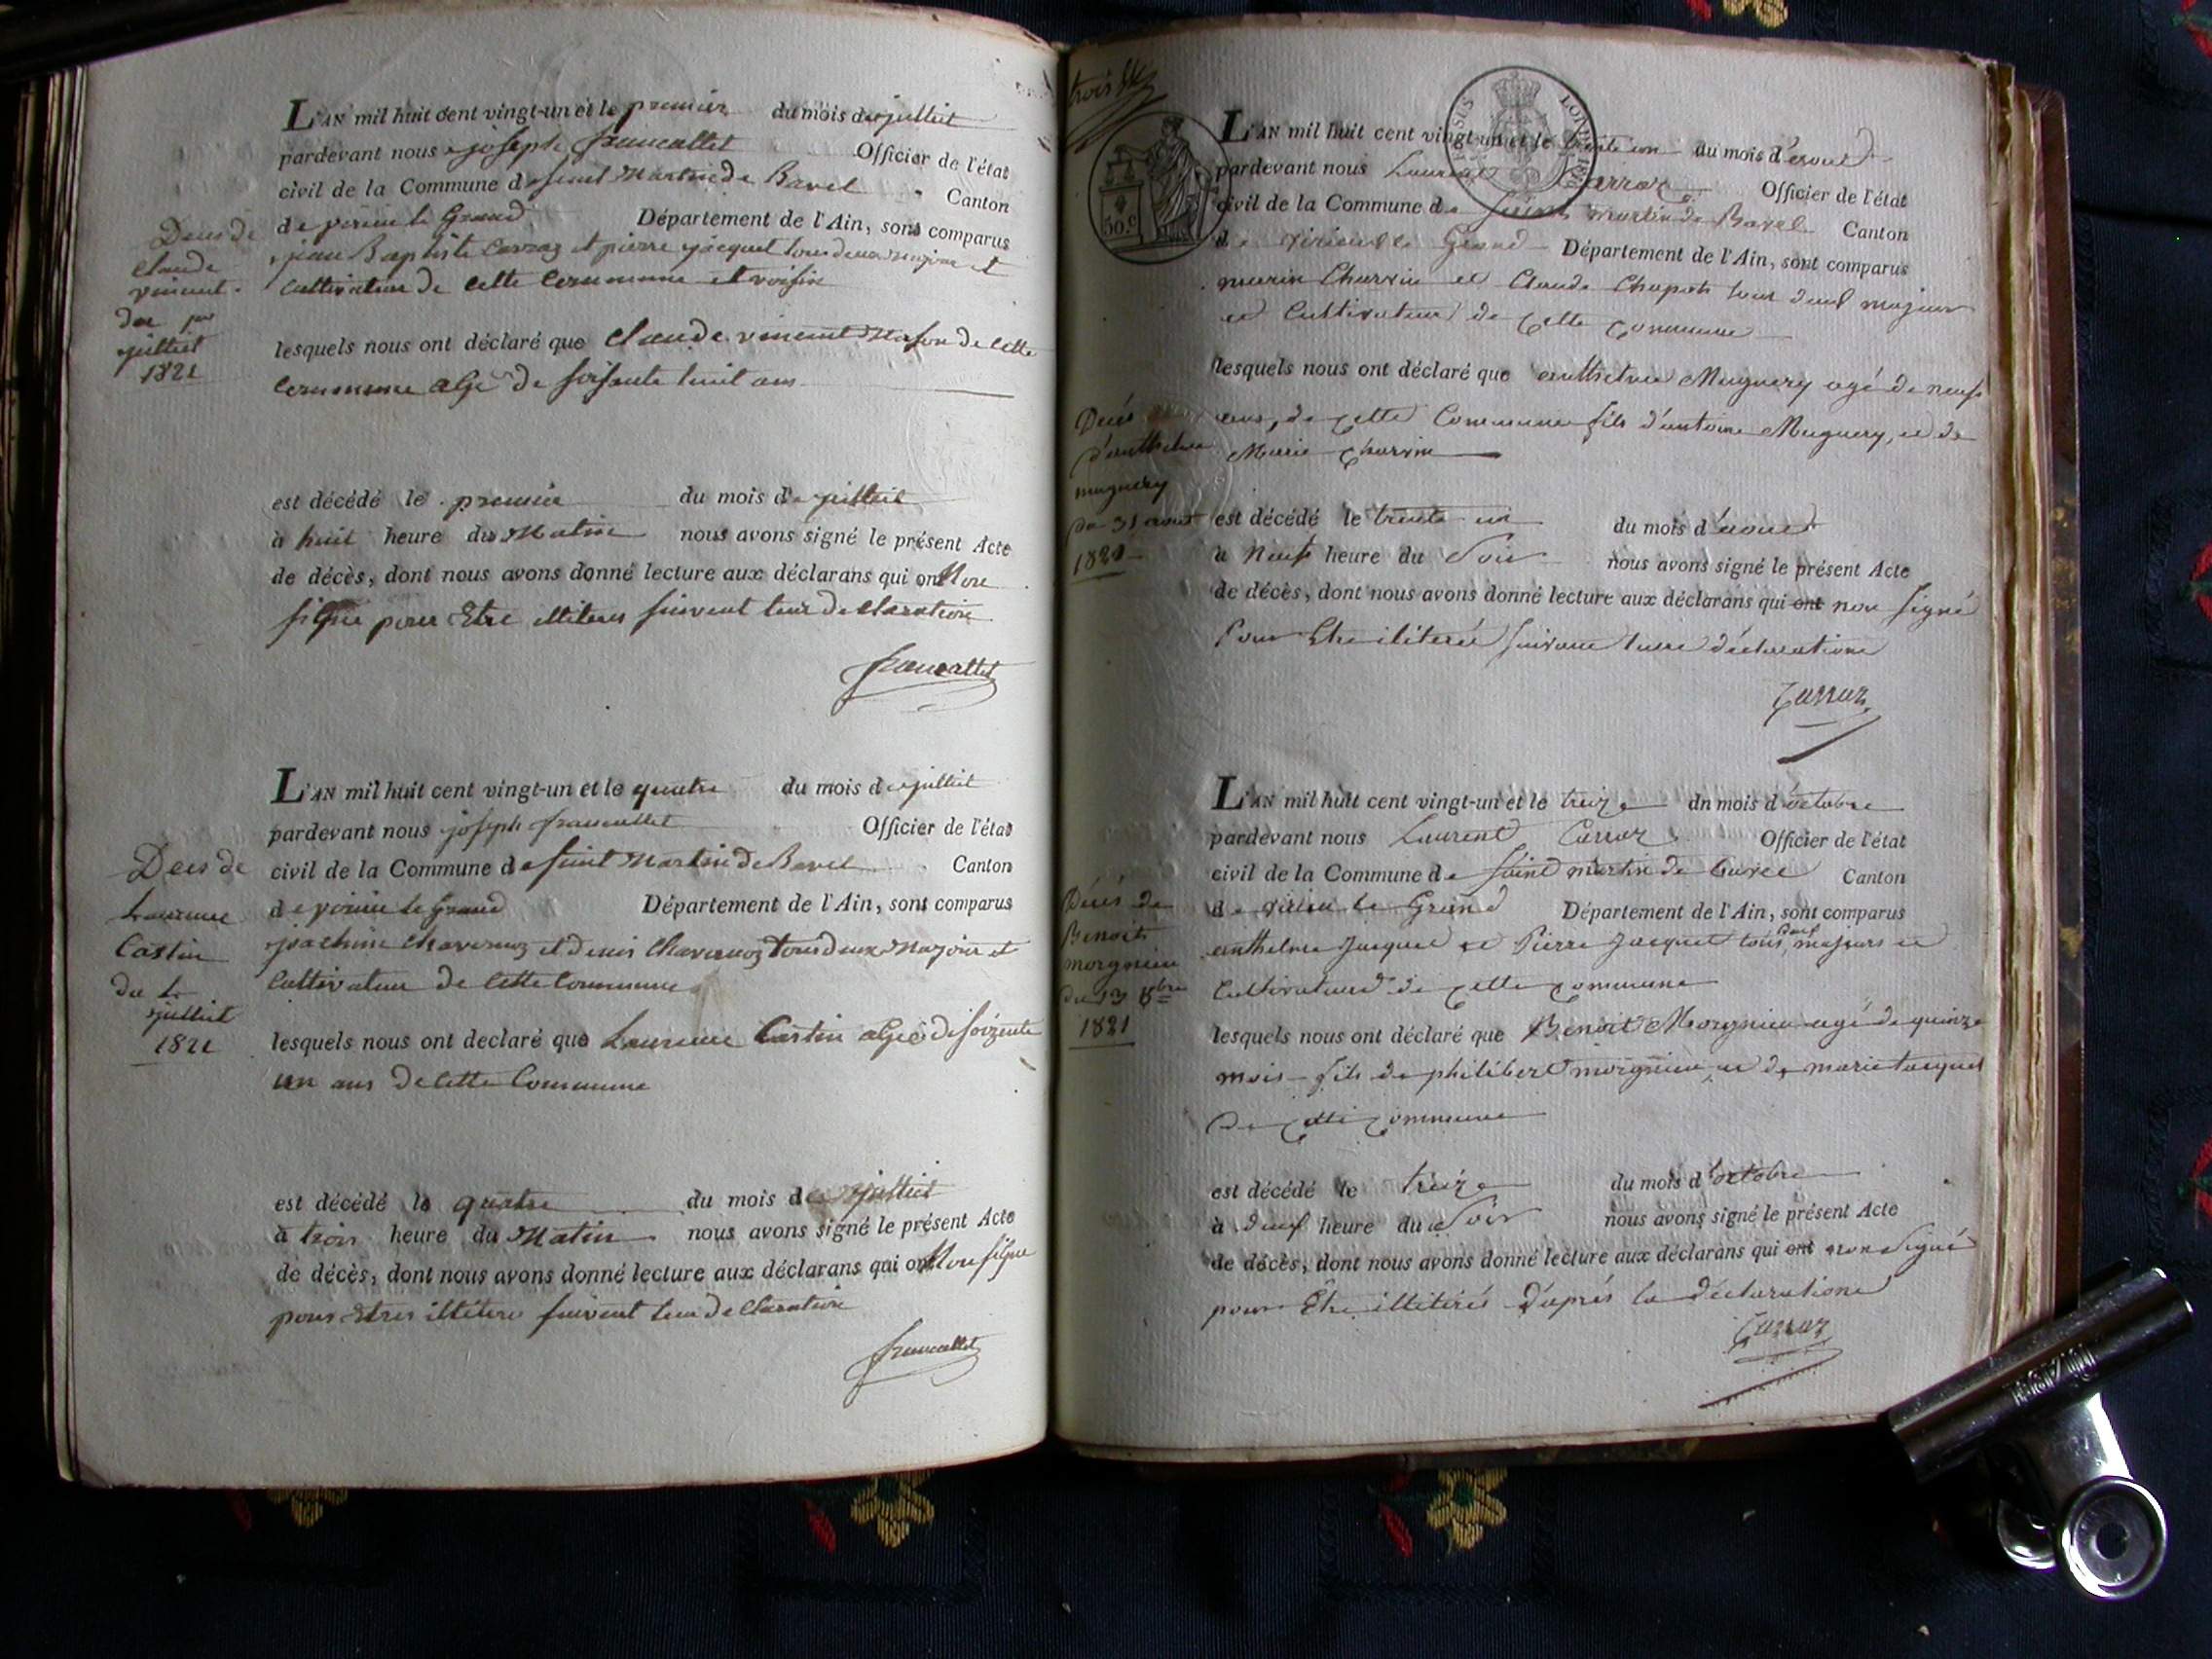 L'AN mil huit cent vingt-un et le premier du mois de juillet
pardevant nous joseph francallet Officier de l'état
civil de la Commune de saint Martin de Bavel Canton
de virieu le Grand Département de l'Ain, sont comparus
jean Baptiste Carraz et pierre jacquet tous deux majour et
Cultivateur de cette Commune et voisin
lesquels nous ont déclaré que Claude vincent Mason de cette
Commune alge de soisente huit ans
Deces de
Claude
vincent
du 1er
juillet
1821
est décédé le premier du mois de juillet
à huit heure du Matin nous avons signé le présent Acte
de décès, dont nous avons donné lecture aux déclarans qui ont Non
signe pour Etre illiteres suivent leur declaration
francallet
L'AN mil huit cent vingt-un et le quatre du mois de juillet
pardevant nous joseph francallet Officier de l'état
civil de la Commune de saint Martin de Bavel Canton
de virieu le Grand Département de l'Ain, sont comparus
joachim Chavernoz et Denis Chavernoz tous deux Majour et
Cultivateur de Cette Commune
lesquels nous ont declaré que Laurence Castin algé de soizente
un ans de Cette Commune
Deces de
Laurence
Castin
du 4
juillet
1821
est décédé le quatre du mois de juillet
à trois heure du Matin nous avons signé le présent Acte
de décès, dont nous avons donné lecture aux déclarans qui ont Non signe
pour Etres illitere suivent leur declaration
francallet
trois
50 c
L'AN mil huit cent vingt-un et le trente un du mois d'aout
pardevant nous Laurent Carraz Officier de l'état
civil de la Commune de Saint martin de Bavel Canton
de virieu le Grand Département de l'Ain, sont comparus
marin Charvin et Claude Chapot tous deux majeur
et Cultivateur de Cette Commune
lesquels nous ont déclaré que anthelme Muguery agé de neuf
ans, de Cette Commune fils d'antoine Muguery, et de
Marie Charvin
Decés
d'anthelme
muguery
du 31 aout
1821
est décédé le trente un du mois d'aout
à neuf heure du Soir nous avons signé le présent Acte
de décès, dont nous avons donné lecture aux déclarans qui ont non signé
Pour Etre iliteré suivant leur déclaratione
Carraz
L'AN mil huit cent vingt-un et le treize dn mois d'octobre
pardevant nous Laurent Carraz Officier de l'état
civil de la Commune de Saint martin de bavel Canton
de virieu le Grand Département de l'Ain, sont comparus
anthelme Jacquet et Pierre Jacquet tous deux majeurs et
Cultivateur de Cette Commune
lesquels nous ont déclaré que Benoit Morgnieu agé de quinze
mois fils de philibert morgnieu et de marie Jacquet
de Cette Commune
Décés de
Benoit
morgnieu
du 13 8bre
1821
est décédé le treize du mois d'octobre
à deux heure du Soir nous avons signé le présent Acte
de décès, dont nous avons donné lecture aux déclarans qui ont non Signé
pour Etre illitérés d'aprés la déclaratione
Carraz